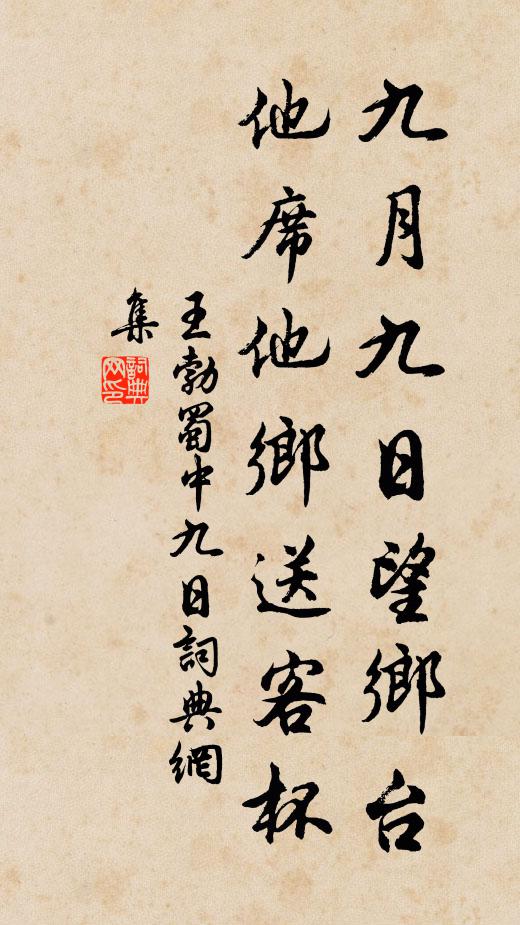 九月九日望鄉台
他席他鄉送客杯
王勃蜀中九日詞典網
集
詞典网印